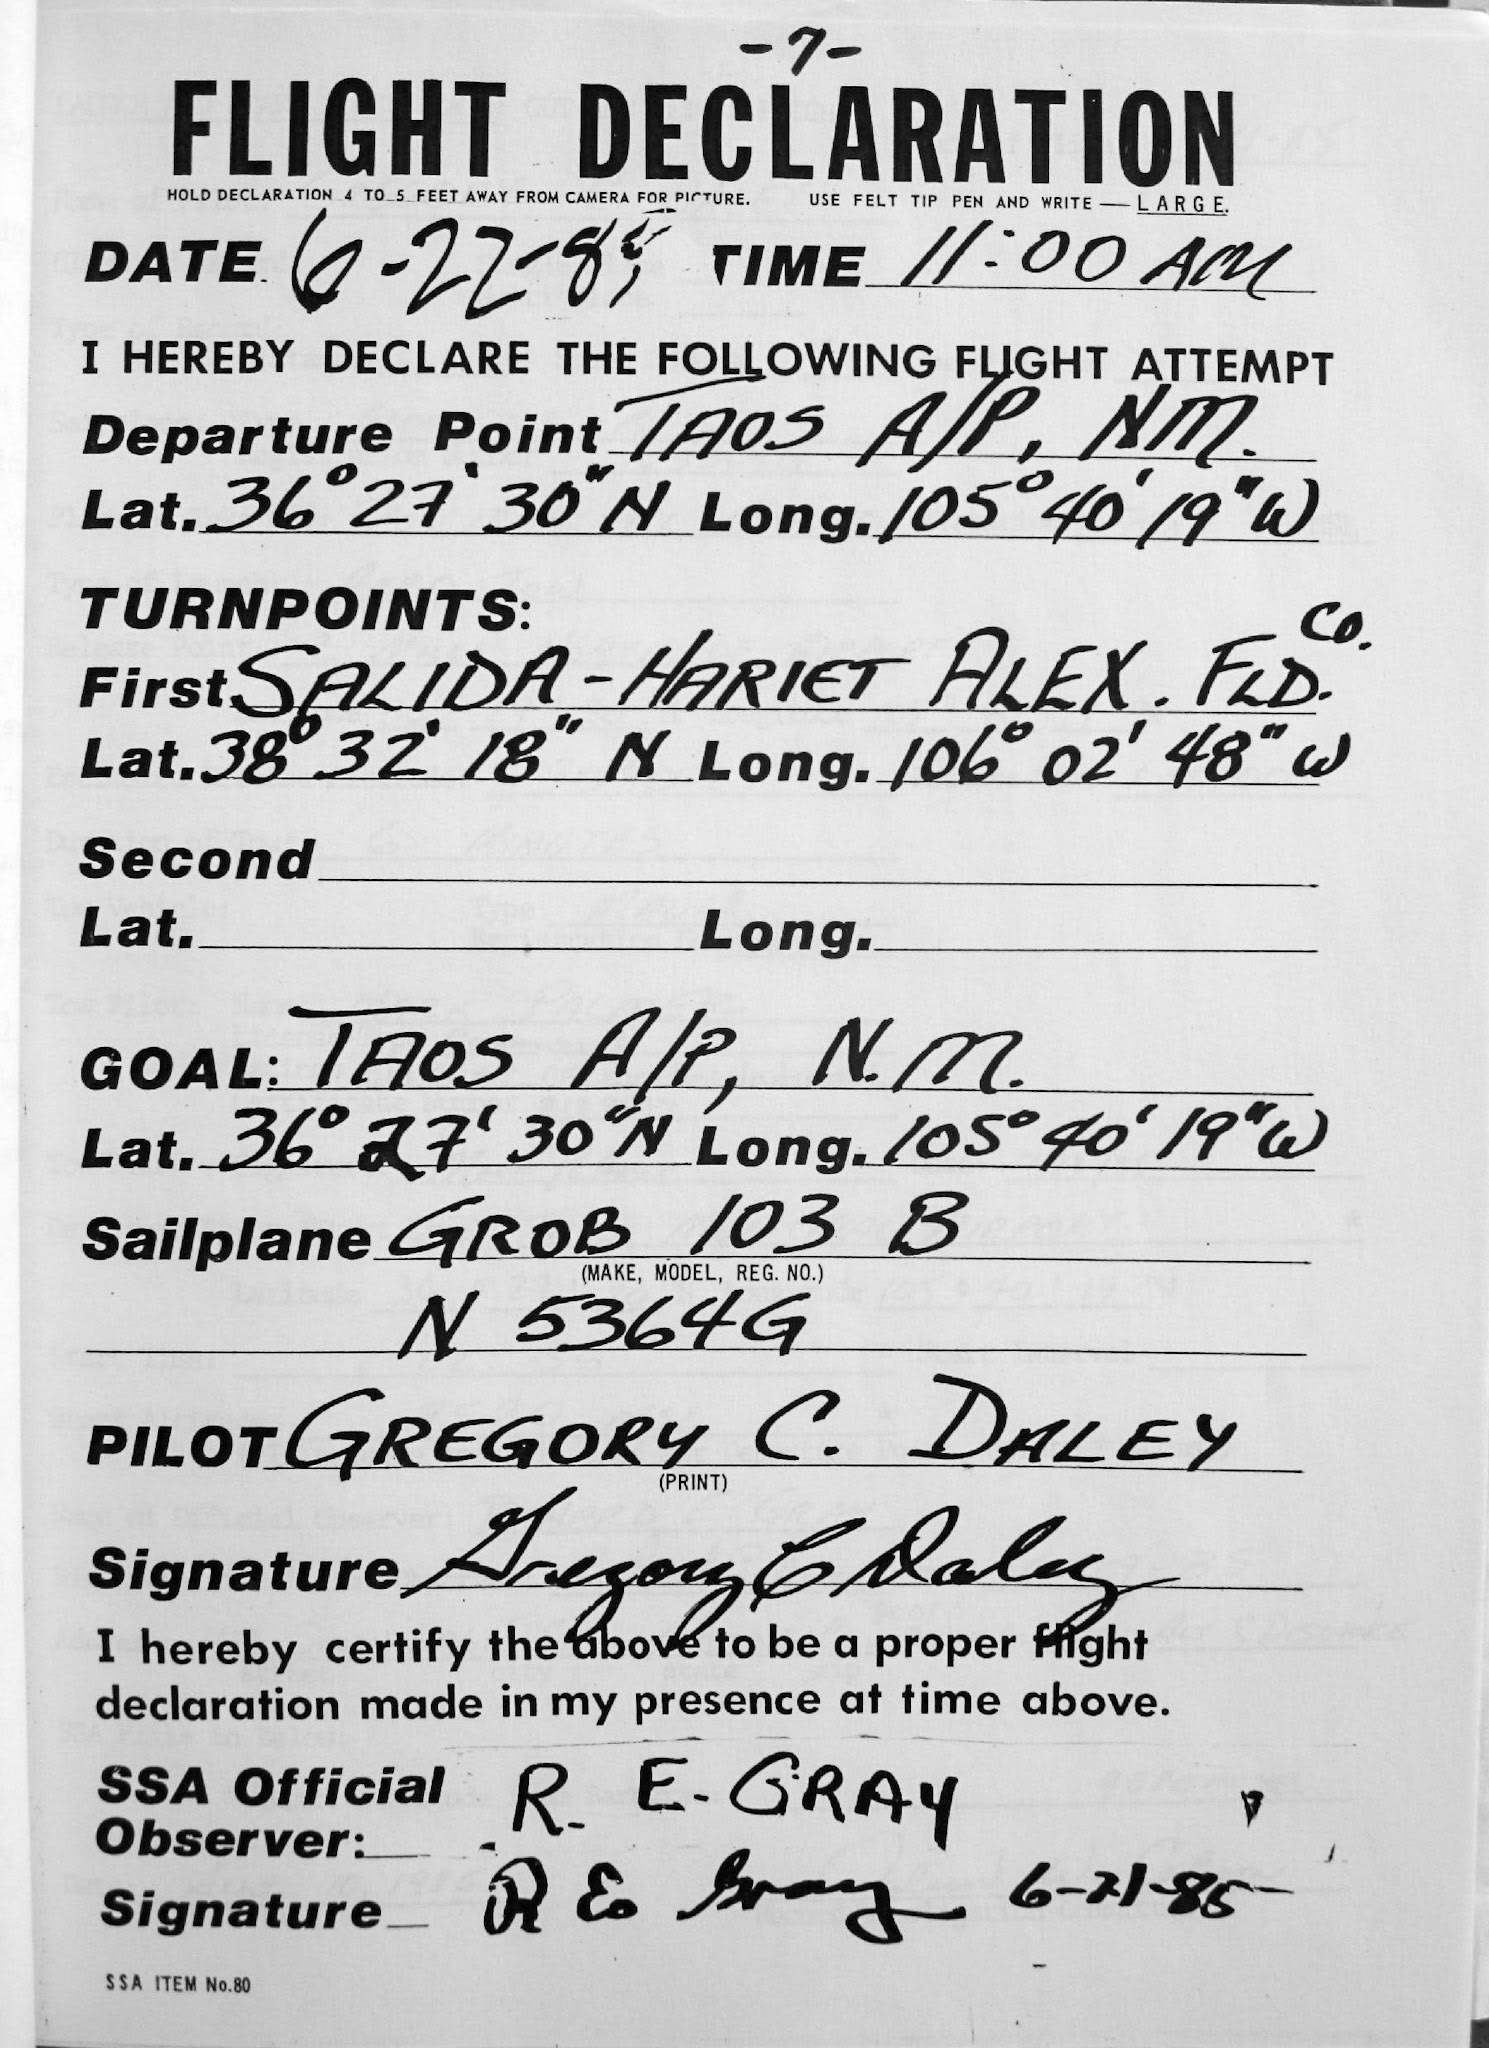 -7-
FLIGHT DECLARATION
HOLD DECLARATION 4 TO 5 FEET AWAY FROM CAMERA FOR PICTURE. USE FELT TIP PEN AND WRITE — LARGE.
DATE 6-22-85 TIME 11:00 AM
I HEREBY DECLARE THE FOLLOWING FLIGHT ATTEMPT
Departure Point TAOS A/P, NM.
Lat. 36° 27' 30" N Long. 105° 40' 19" W
TURNPOINTS:
First SALIDA - HARIET ALEX. FLD. CO.
Lat. 38° 32' 18" N Long. 106° 02' 48" W
Second
Lat. Long.
GOAL: TAOS A/P, N.M.
Lat. 36° 27' 30" N Long. 105° 40' 19" W
Sailplane GROB 103 B
(MAKE, MODEL, REG. NO.)
N 5364G
PILOT GREGORY C. DALEY
(PRINT)
Signature Gregory C Daley
I hereby certify the above to be a proper flight
declaration made in my presence at time above.
SSA Official
Observer: R. E. GRAY
Signature R E Gray 6-21-85
SSA ITEM No.80